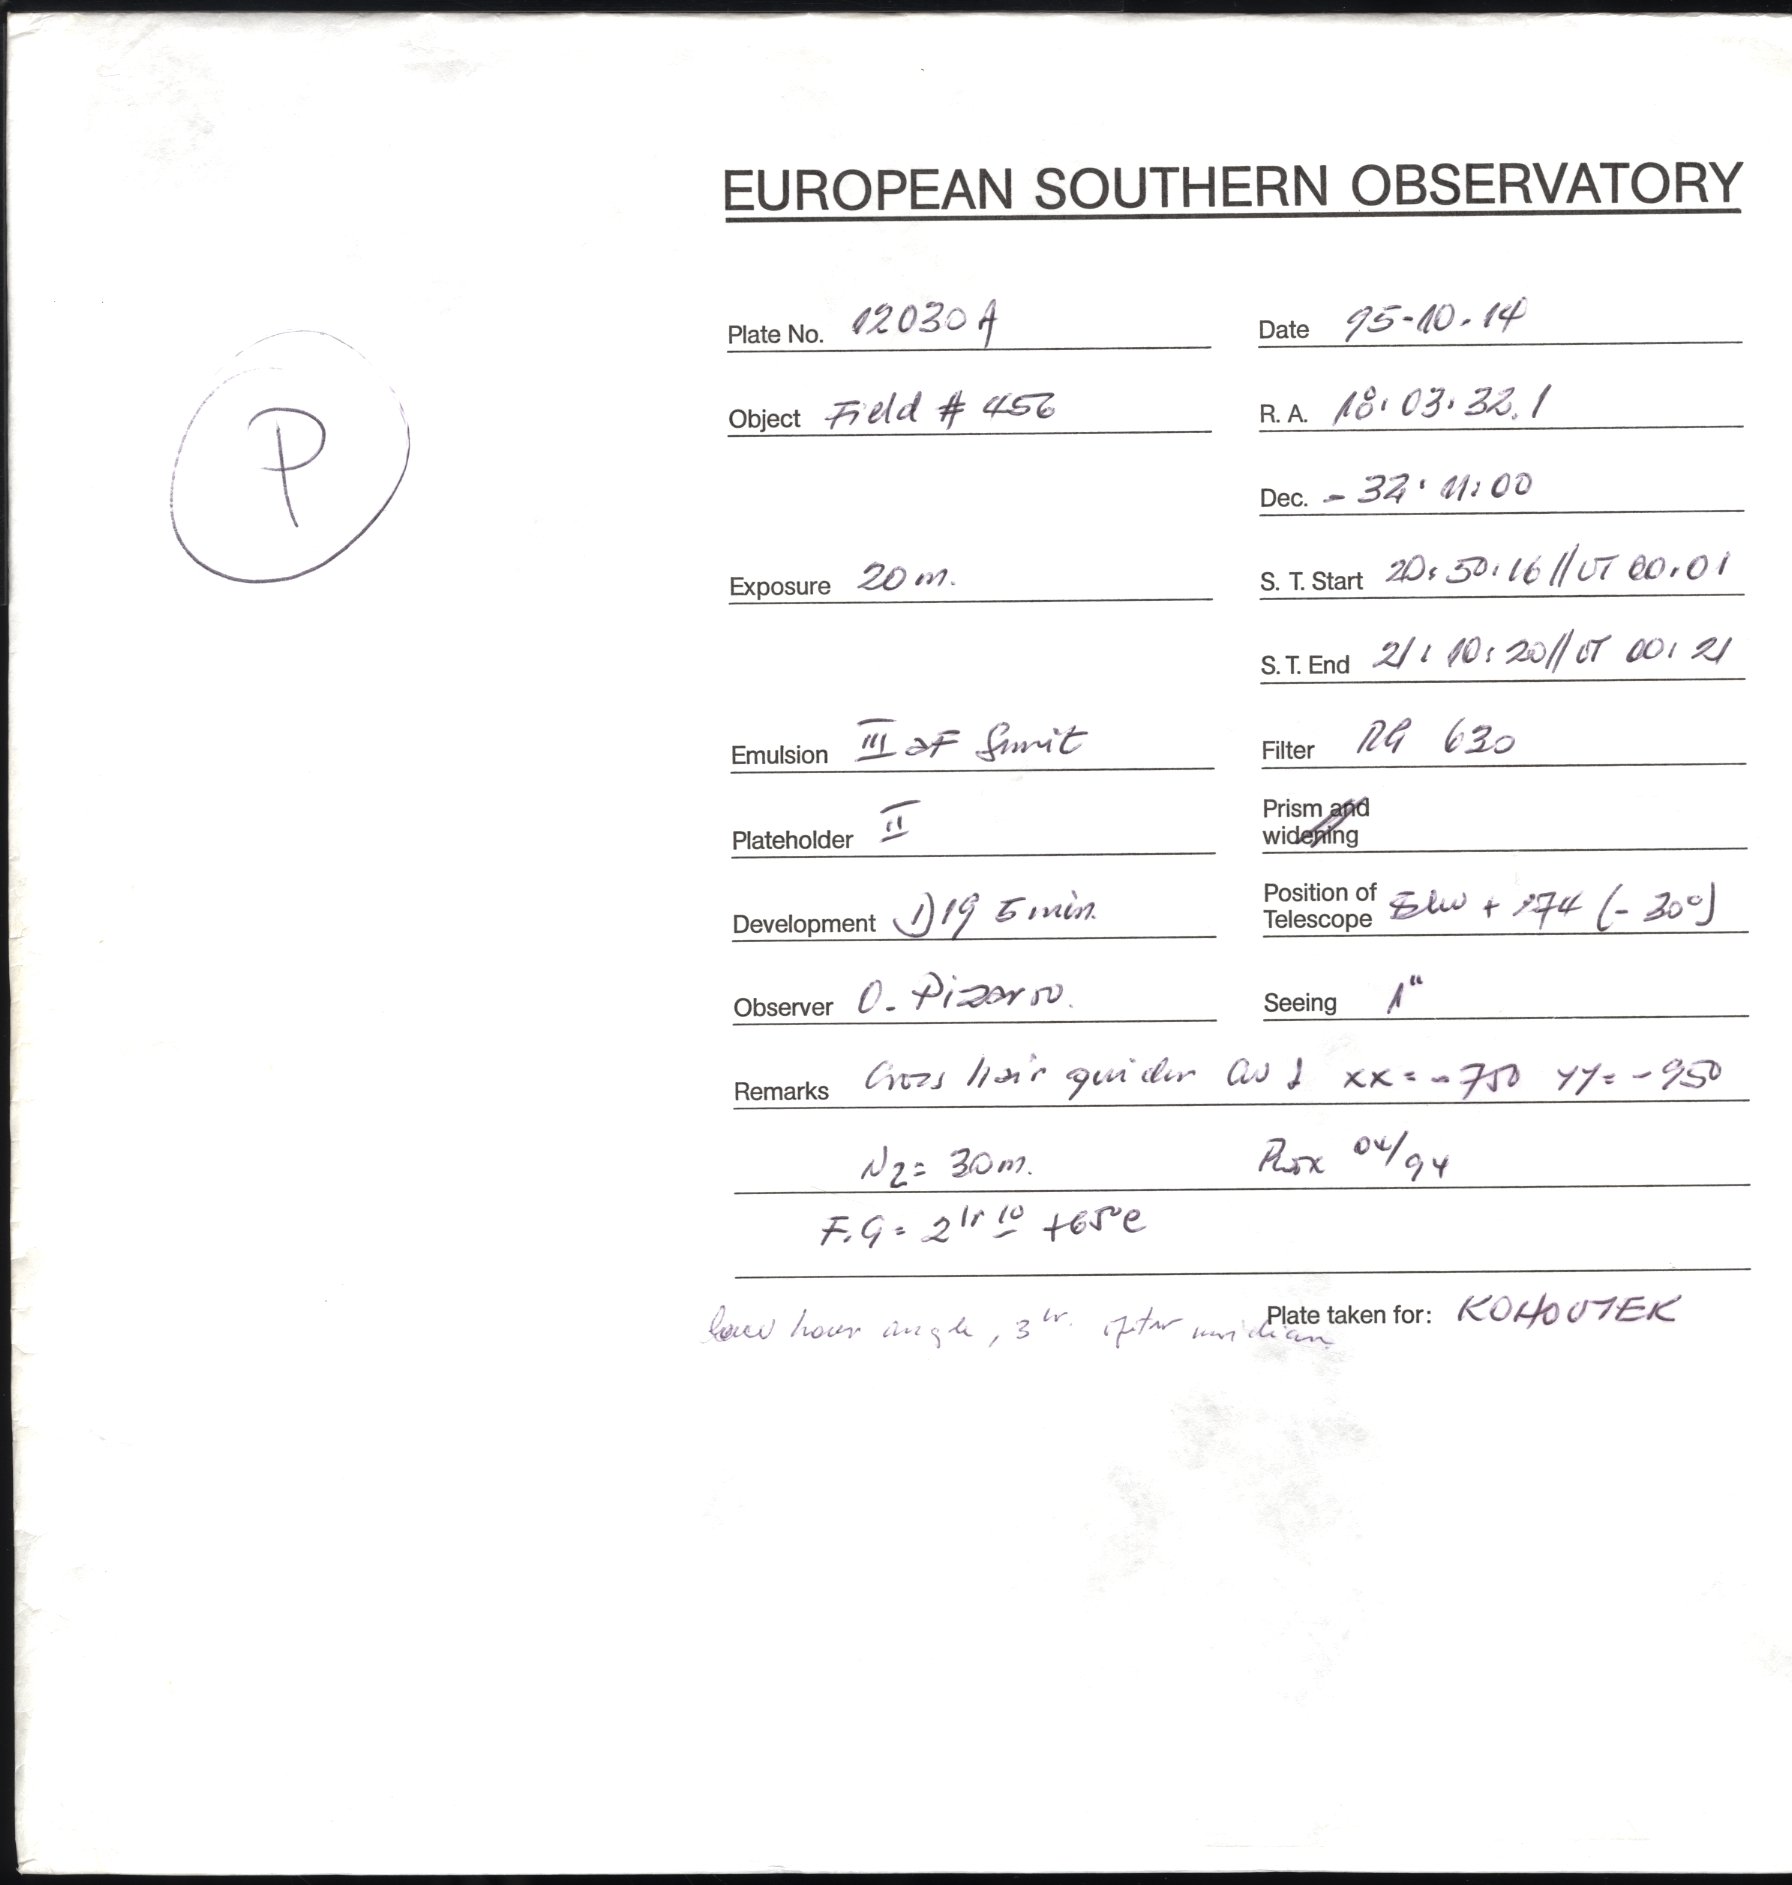 EUROPEAN SOUTHERN OBSERVATORY
P
Plate No. 12030 A
Date 95-10-14
Object Field # 456
R. A. 18:03:32.1
Dec. - 32:11:00
Exposure 20 m.
S. T. Start 20:50:16 // UT 00:01
S. T. End 21:10:20 // UT 00:21
Emulsion III aF
Filter RG 630
Plateholder II
Prism and widening
Development 1) 19 5 min.
Position of Telescope + 174 (- 30°)
Observer O. Pizarro.
Seeing 1"
Remarks Cross hair guider xx = -750 yy = -950
N2 = 30 m. 04/94
F.G = 2 hr 10 +65°C
hour angle, 3 hr. after meridian
Plate taken for: KOHOUTEK